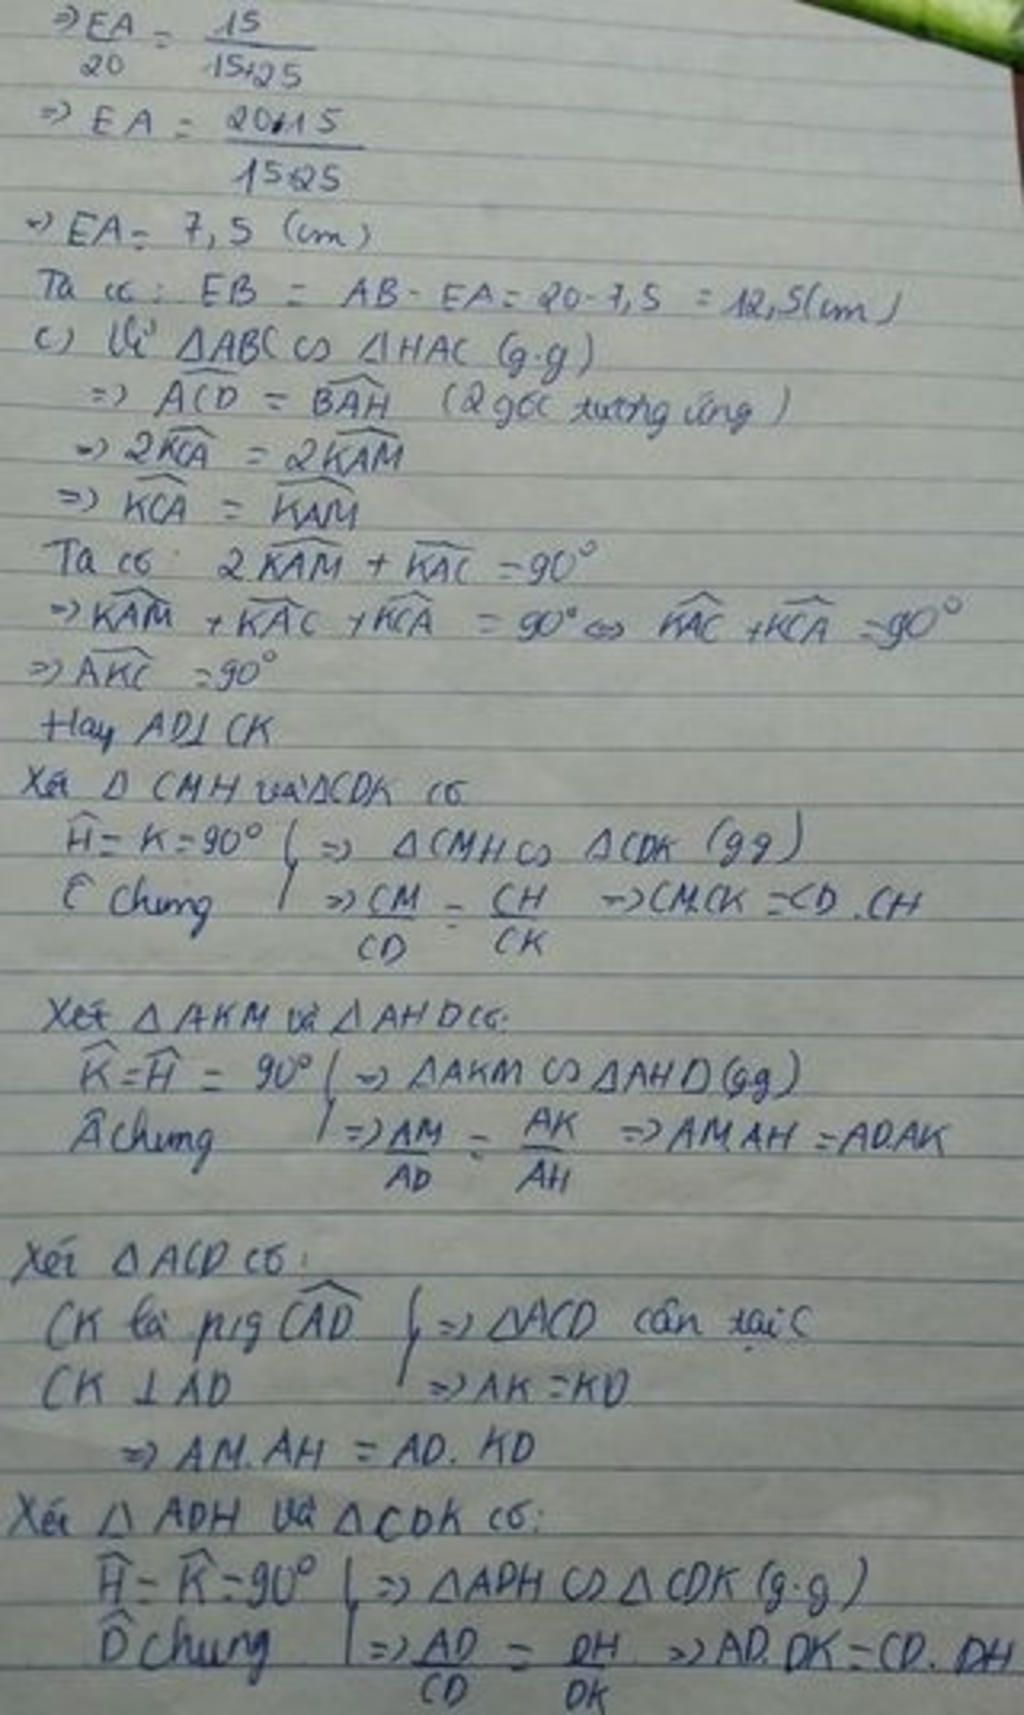 => EA/20 = 15/15+25
=> EA = 20.15/15+25
=> EA = 7,5 (cm)
Ta có: EB = AB - EA = 20-7,5 = 12,5(cm)
c) Vì ΔABC ∽ ΔHAC (g.g)
=> \widehat{ACD} = \widehat{BAH} (2 góc tương ứng)
=> 2\widehat{KCA} = 2\widehat{KAM}
=> \widehat{KCA} = \widehat{KAM}
Ta có 2\widehat{KAM} + \widehat{KAC} = 90°
=> \widehat{KAM} + \widehat{KAC} + \widehat{KCA} = 90° <=> \widehat{KAC} + \widehat{KCA} = 90°
=> \widehat{AKC} = 90°
Hay AD⊥CK
Xét Δ CMH và ΔCDK có
\widehat{H} = K = 90° } => ΔCMH ∽ ΔCDK (gg)
Ĉ chung } => CM/CD = CH/CK => CM.CK = CD.CH
Xét ΔAKM và ΔAHD có:
\widehat{K} = \widehat{H} = 90° } => ΔAKM ∽ ΔAHD (g.g)
Â chung } => AM/AD = AK/AH => AM.AH = AD.AK
Xét ΔACD có:
CK là p/g \widehat{CAD} } => ΔACD cân tại C
CK ⊥ AD } => AK = KD
=> AM.AH = AD.KD
Xét Δ ADH và ΔCDK có:
\widehat{H} = \widehat{K} = 90° } => ΔADH ∽ ΔCDK (g.g)
\widehat{D} chung } => AD/CD = DH/DK => AD.DK = CD.DH